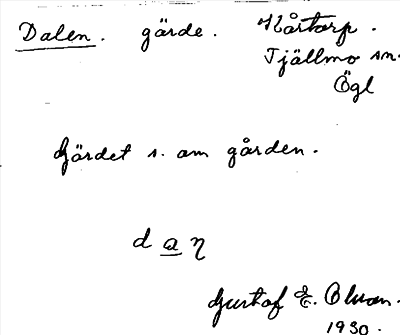 Dalen. gärde. Kårtorp.
Tjällmo sn.
Ögl
Gärdet s. om gården.
d a η
Gustaf E. Olson.
1930.